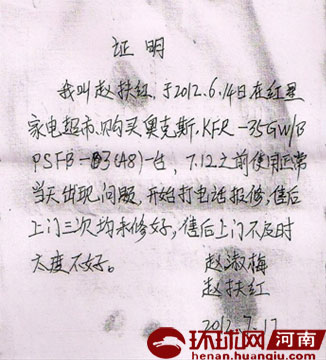 证明
我叫赵扶红,于2012.6.14日在红星
家电超市、购买奥克斯,KFR-35GW/B
PSFB-B3(48)一台,7.12之前使用正常
当天出现问题,开始打电话报修,售后
上门三次均未修好,售后上门不及时
太度不好。
赵淑梅
赵扶红
2012.7.17
环球网 河南
henan.huanqiu.com